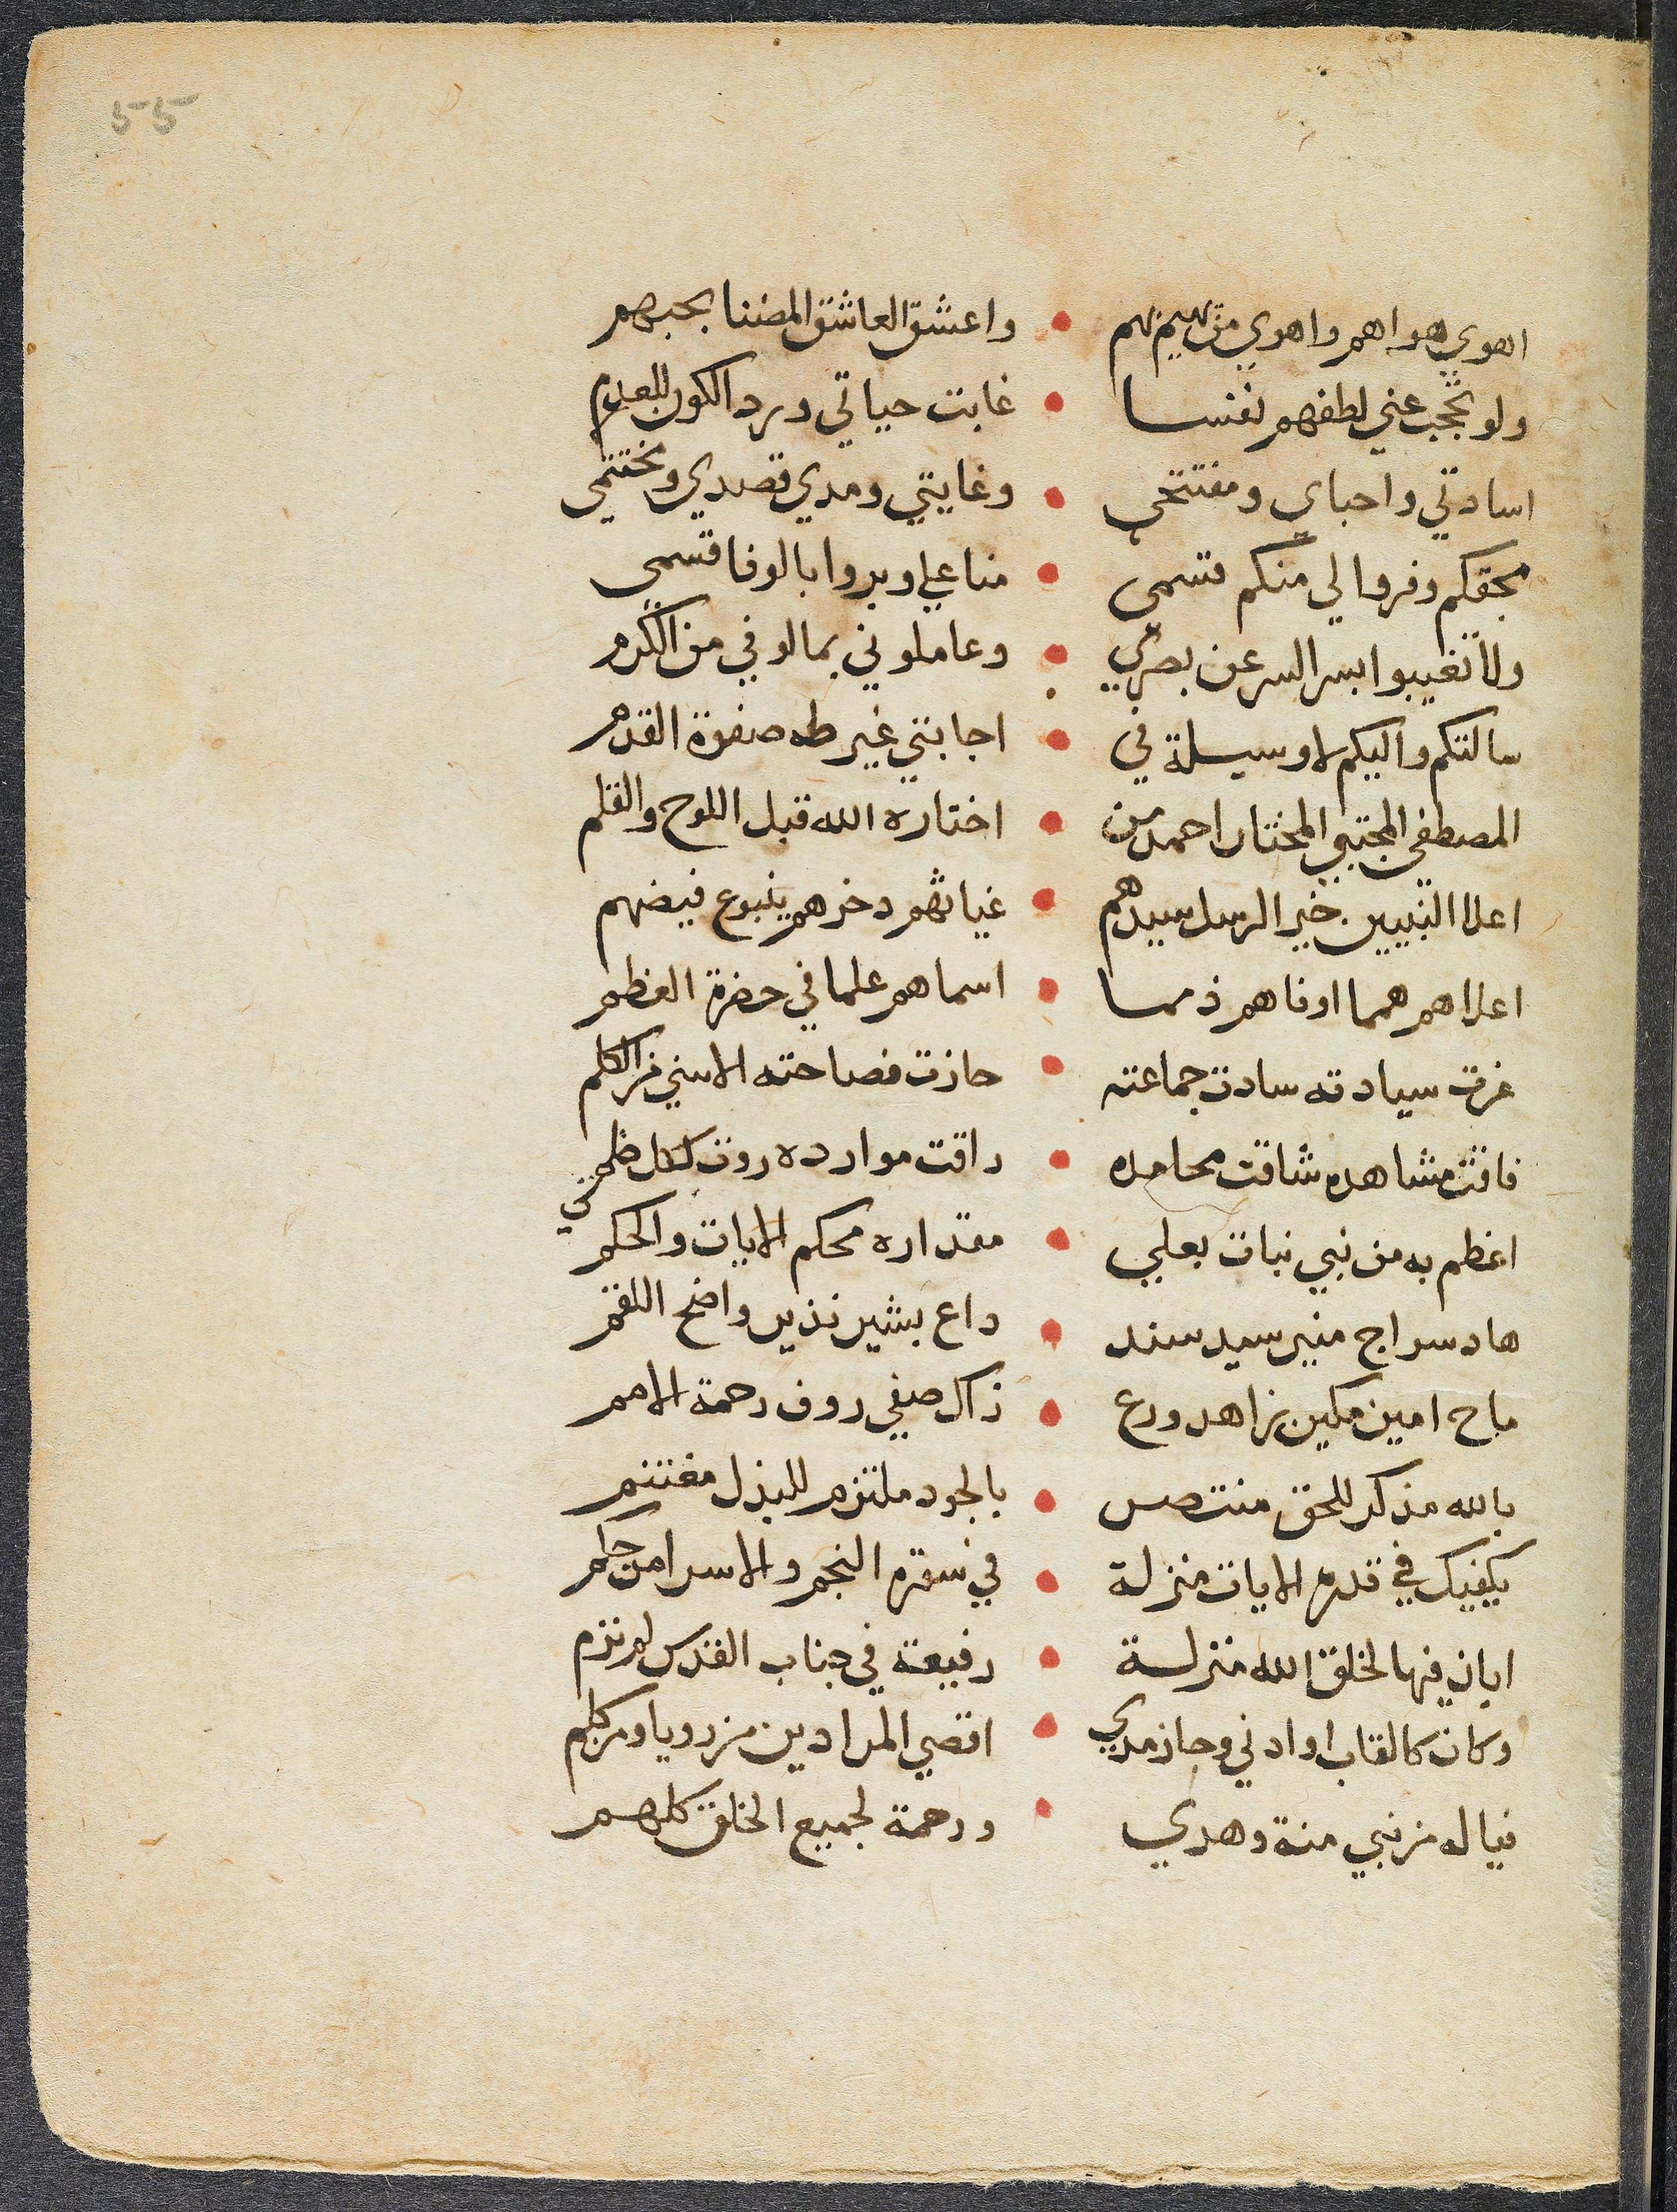 55
اهوي هواهم واهوي من يهيم بهم • واعشق العاشق المضنا بحبهم
ولو تحجب عني لطفهم نفسا • غابت حياتي ورد الكون للعدم
اسادتي واحباي ومفتتحي • وغايتي ومدي قصدي ومختتمي
بحقكم وفروا لي منكم قسمي • منا علي وبروا بالوفا قسمي
ولا تغيبوا بسر السر عن بصري • وعاملوني بمالوفي من الكرم
سالتكم واليكم لا وسيلة في • اجابتي غير طه صفوة القدم
المصطفي المجتبي المختار احمد من • اختاره الله قبل اللوح والقلم
اعلا النبيين خير الرسل سيدهم • غياثهم دخرهم ينبوع فيضهم
اعلاهم همما اوفاهم ذمما • اسماهم علما في حضرة العظم
عزت سيادته سادت جماعته • حازت فصاحته الاسني من الكلم
فاقت مشاهده شاقت محامده • راقت موارده روت لكل ظمي
اعظم به من نبي نبات بعلي • مقداره محكم الايات والحكم
هاد سراج منير سيد سند • داع بشير نذير واضح اللقم
ماح امين مكين زاهد ورع • زاك صفي روف رحمة الامم
بالله مذكر للحق منتصر • بالجود ملتزم للبذل مغتنم
يكفيك في قدره الايات منزلة • في سورة النجم والاسرا من حكم
ابان فيها لخلق الله منزلة • رفيعة في جناب القدس لم ترم
وكان كالقاب او ادني وحاز مدي • اقصي المرادين من رويا ومن كلم
فيا له من نبي منة وهدي • ورحمة لجميع الخلق كلهم